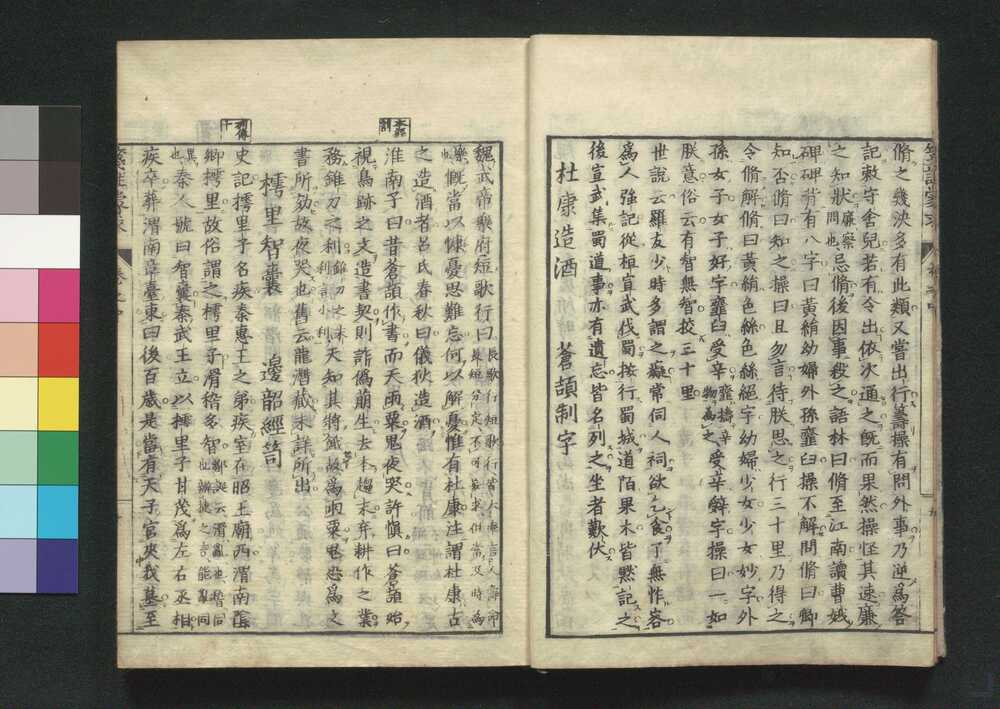 脩之幾決多有此類又嘗出行籌操有問外事乃逆爲答
記敕守舍兒若有令出依次通之既而果然操怪其速廉
之知狀廉察問也忌脩後因事殺之語林曰脩至江南讀曹娥
碑碑背有八字曰黃絹幼婦外孫韲臼操不解問脩曰卿
知否脩曰知之操曰且勿言待朕思之行三十里乃得之
令脩解脩曰黃絹色絲色絲絕字幼婦少女少女妙字外
孫女子女子好字韲臼受辛韲擣辛物爲之受辛辤字操曰一如
朕意俗云有智無智挍三十里
世說云羅友少時多謂之癡常伺人祠欲乞食了無怍容
爲人强記從桓宣武伐蜀按行蜀城道陌果木皆默記之
後宣武集蜀道事亦有遺忘皆名列之坐者歎伏
杜康造酒 蒼頡制字
魏武帝樂府短歌行曰長歌行短歌行
慨當以慷憂思難忘何以解憂惟有杜康注謂杜康古
之造酒者呂氏春秋曰儀狄造酒
淮南子曰昔蒼頡作書而天雨粟鬼夜哭許愼曰蒼頡始
視鳥跡之文造書契則詐僞萌生去本趨末弃耕作之業
務錐刀之利錐刀之末利言小利天知其將餓故爲雨粟鬼恐爲
書所劾故夜哭也舊云龍潛藏未詳所出
樗里智囊 邊韶經笥
史記樗里子名疾秦惠王之弟疾室在昭王廟西渭南陰
鄉樗里故俗謂之樗里子滑稽多智
秦人號曰智囊秦武王立以樗里子甘茂爲左右丞相
疾卒葬渭南章臺東曰後百歲是當有天子宮夾我墓至